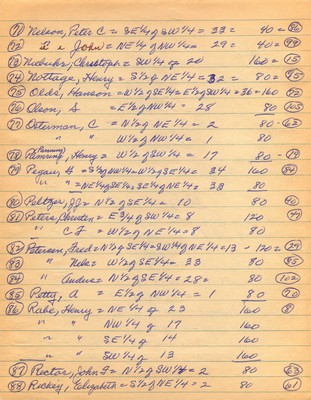 (71) Nelson, Peter C = SE1/4 of SW1/4 = 33 = 40 = (86)
(72) " John = NE1/4 of NW1/4 = 29 = 40 = (99)
(73) Christoph = SW1/4 of 20 160 = (15)
(74) Nottage, Henry = S1/2 of NE1/4 = 32 = 80 = (95)
(75) Olds, Hanson = W1/2 of SE1/4 = E1/2 of SW1/4 = 36 = 160 = (72)
(76) Olson, A = E1/2 of NW1/4 = 28 80 (103)
(77) Osterman, C = N1/2 of NE1/4 = 2 80 - (62)
" " W1/2 of NW1/4 = 1 80
(78) Henry = W1/2 of SW1/4 = 17 80 - (19)
(79) = S1/2 of NW1/4 = W1/2 of SE1/4 = 34 160 (84)
" = NE1/4 of SE1/4 = SE1/4 of NE1/4 = 33 80
(80) Peltzer, J = N1/2 of SE1/4 = 10 80 (46)
(81) Peters, = E3/4 of SW1/4 = 8 120 (49)
" C F = W1/2 of NE1/4 = 8 80
(82) Peterson, Fred = N1/2 of SE1/4 = SW1/4 of NE1/4 = 13 - 120 = (29)
(83) " = W1/2 of SW1/4 = 33 80 (85)
(84) " Andrew = N1/2 of NE1/4 = 28 = 80 (102)
(85) Petty, A = E1/2 of NE1/4 = 1 80 (70)
(86) Rabe, Henry = NE1/4 of 23 160 (8)
" " NW1/4 of 17 160
" " SE1/4 of 14 160
" " SW1/4 of 13 160
(87) Rector, John = N1/2 of SW1/4 = 2 80 (63)
(88) Rickey, Elizabeth = S1/2 of NE1/4 = 2 80 (61)